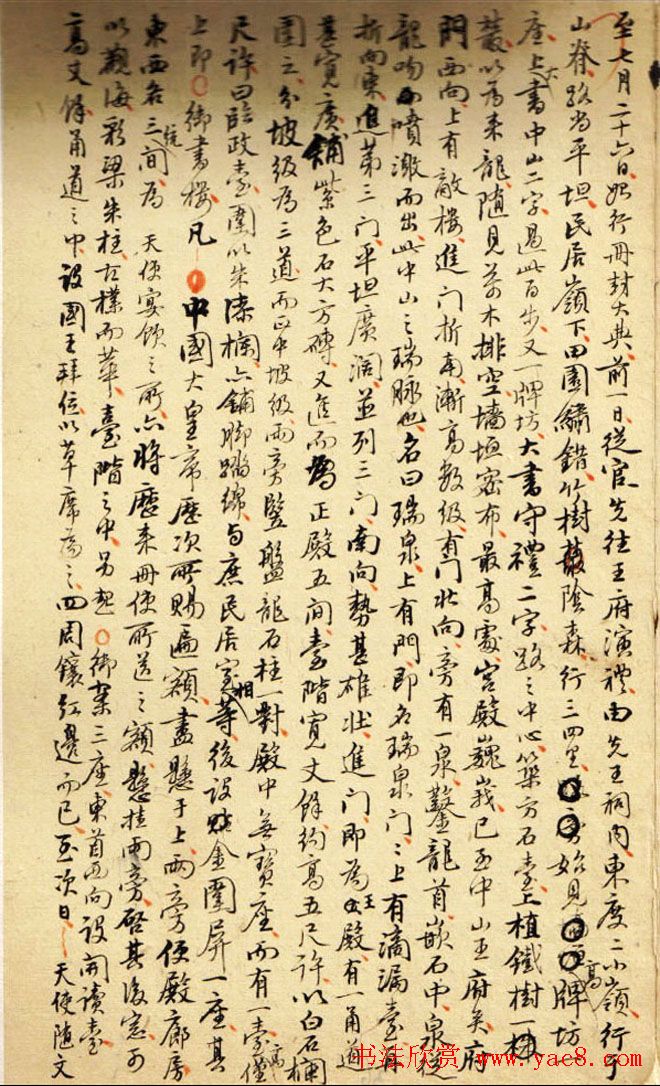 至七月二十六日始行冊封大典前一日從官先往王府演禮由先王祠內東度二小嶺行于
山脊路尚平坦民居嶺下田園繡錯竹樹叢陰森行三四里始見高牌坊一
座上大書中山二字過此百步又一牌坊大書守禮二字路之中心築方石臺上植鐵樹一棵
叢以為來龍隨見蒼木排空墻垣密布最高處宮殿巍峩已至中山王府矣府
門西向上有敵樓進門折南漸高數級有門北向旁有一泉鑿龍首嵌石中泉從
龍吻噴激而出此中山之瑞脉也名曰瑞泉上有門即名瑞泉門門上有滴漏臺再
折向東進第三門平坦廣濶並列三門南向勢甚雄壯進門即為王殿有一甬道
甚寬廣鋪紫色石大方磚又進而為正殿五間臺階寬丈餘約高五尺許以白石欄
圍之分坡級為三道而正中坡級兩旁竪盤龍石柱一對殿中無寶座而有一臺僅高
尺許曰臨政臺圍以朱漆欄亦鋪脚蹋綿與庶民居室相等後設貼金圍屏一座其
上即御書樓凡中國大皇帝歷次所賜遍額盡懸于上兩旁便殿廊房
東西各三間為天使宴飲之所亦將歷來冊使所送之額懸挂兩旁啓其後窓可
以觀海彩梁朱柱古樸而華臺階之中另起御案三座東首西向設開讀臺
高丈餘甬道之中設國王拜位以草席為之四周鑲紅邊而已至次日天使隨文
书法欣赏
www.yac8.com